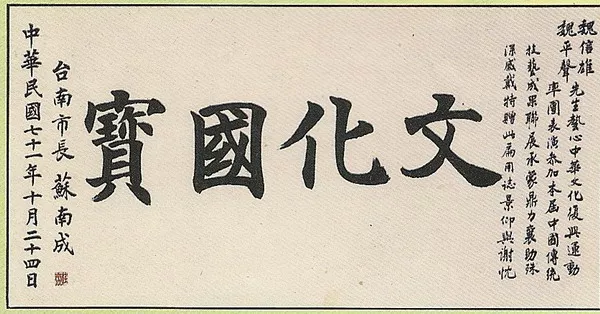 魏信雄
魏平聲
先生熱心中華文化復興運動
率團表演參加本屆中國傳統
技藝成果聯展承蒙鼎力襄助殊
深感戴特贈此匾用誌景仰與謝忱
文化國寶
台南市長 蘇南成
中華民國七十一年十月二十四日